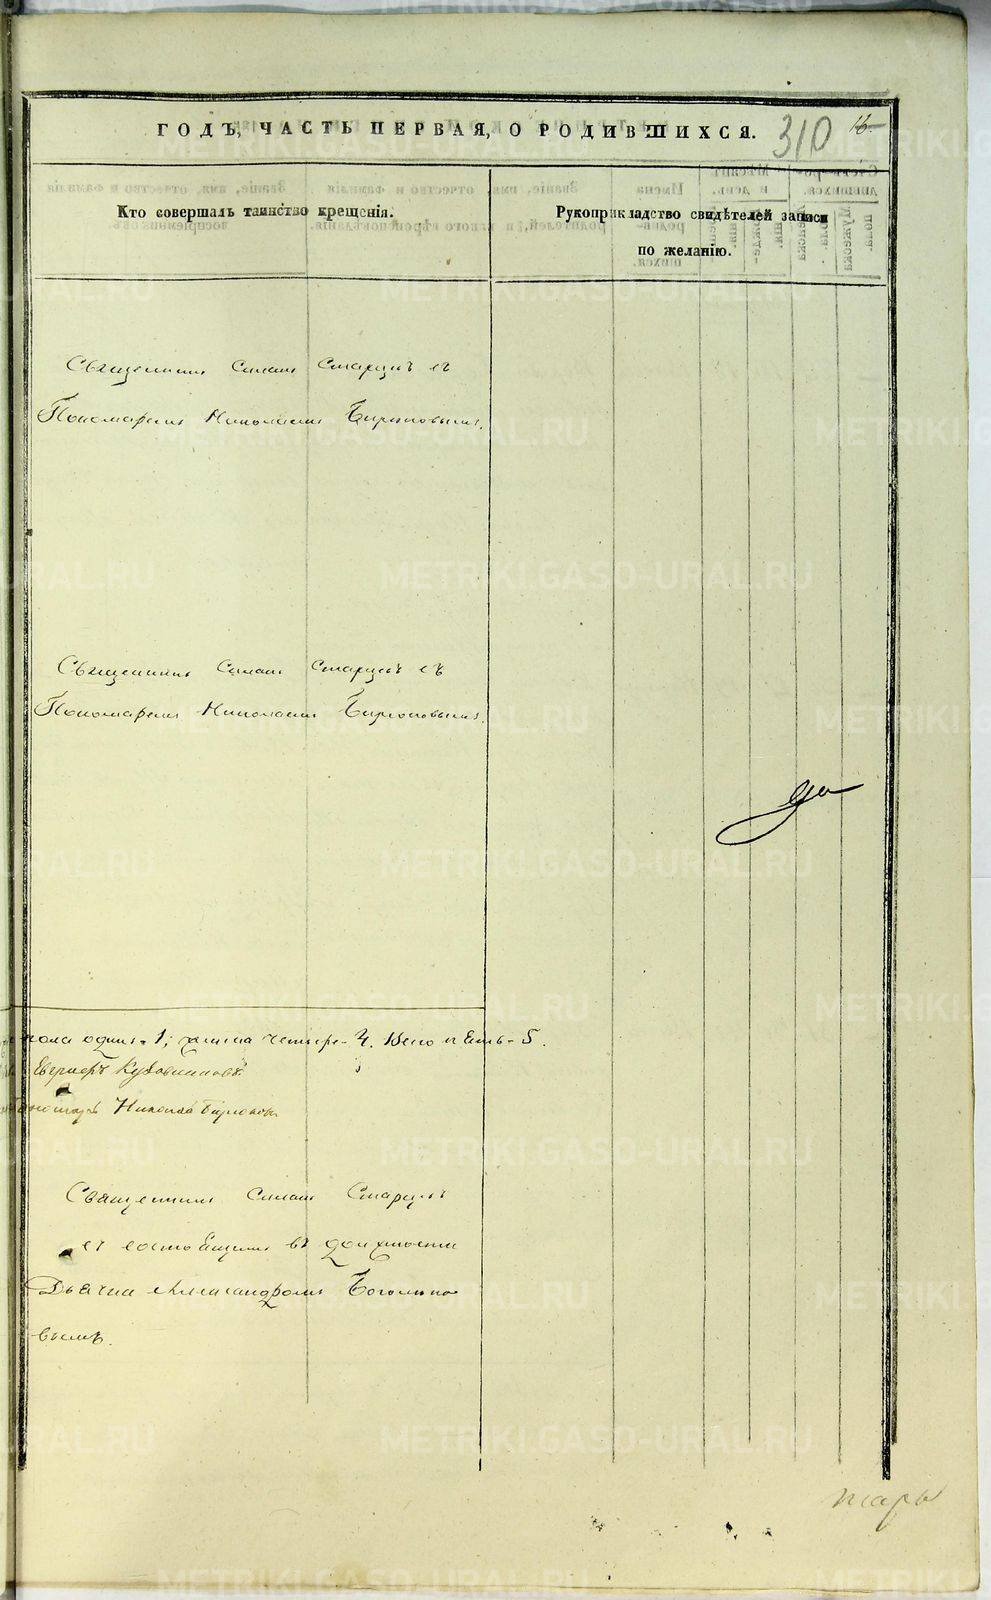 ГОДЪ, ЧАСТЬ ПЕРВАЯ, О РОДИВШИХСЯ.
310
Кто совершалъ таинство крещенія.
Рукоприкладство свидѣтелей записи
по желанію.
Священникъ Симонъ Старцевъ съ
Пономаремъ Николаемъ Бирюковымъ.
Священникъ Симонъ Старцевъ съ
Пономаремъ Николаемъ Бирюковымъ.
пола одинъ - 1; женска четыре - 4. Всего пять - 5.
Николай Бирюковъ
Священникъ Симонъ Старцевъ
съ состоящимъ въ должности
Дьячка Александромъ Боголюбо
вымъ.
METRIKI.GASO-URAL.RU